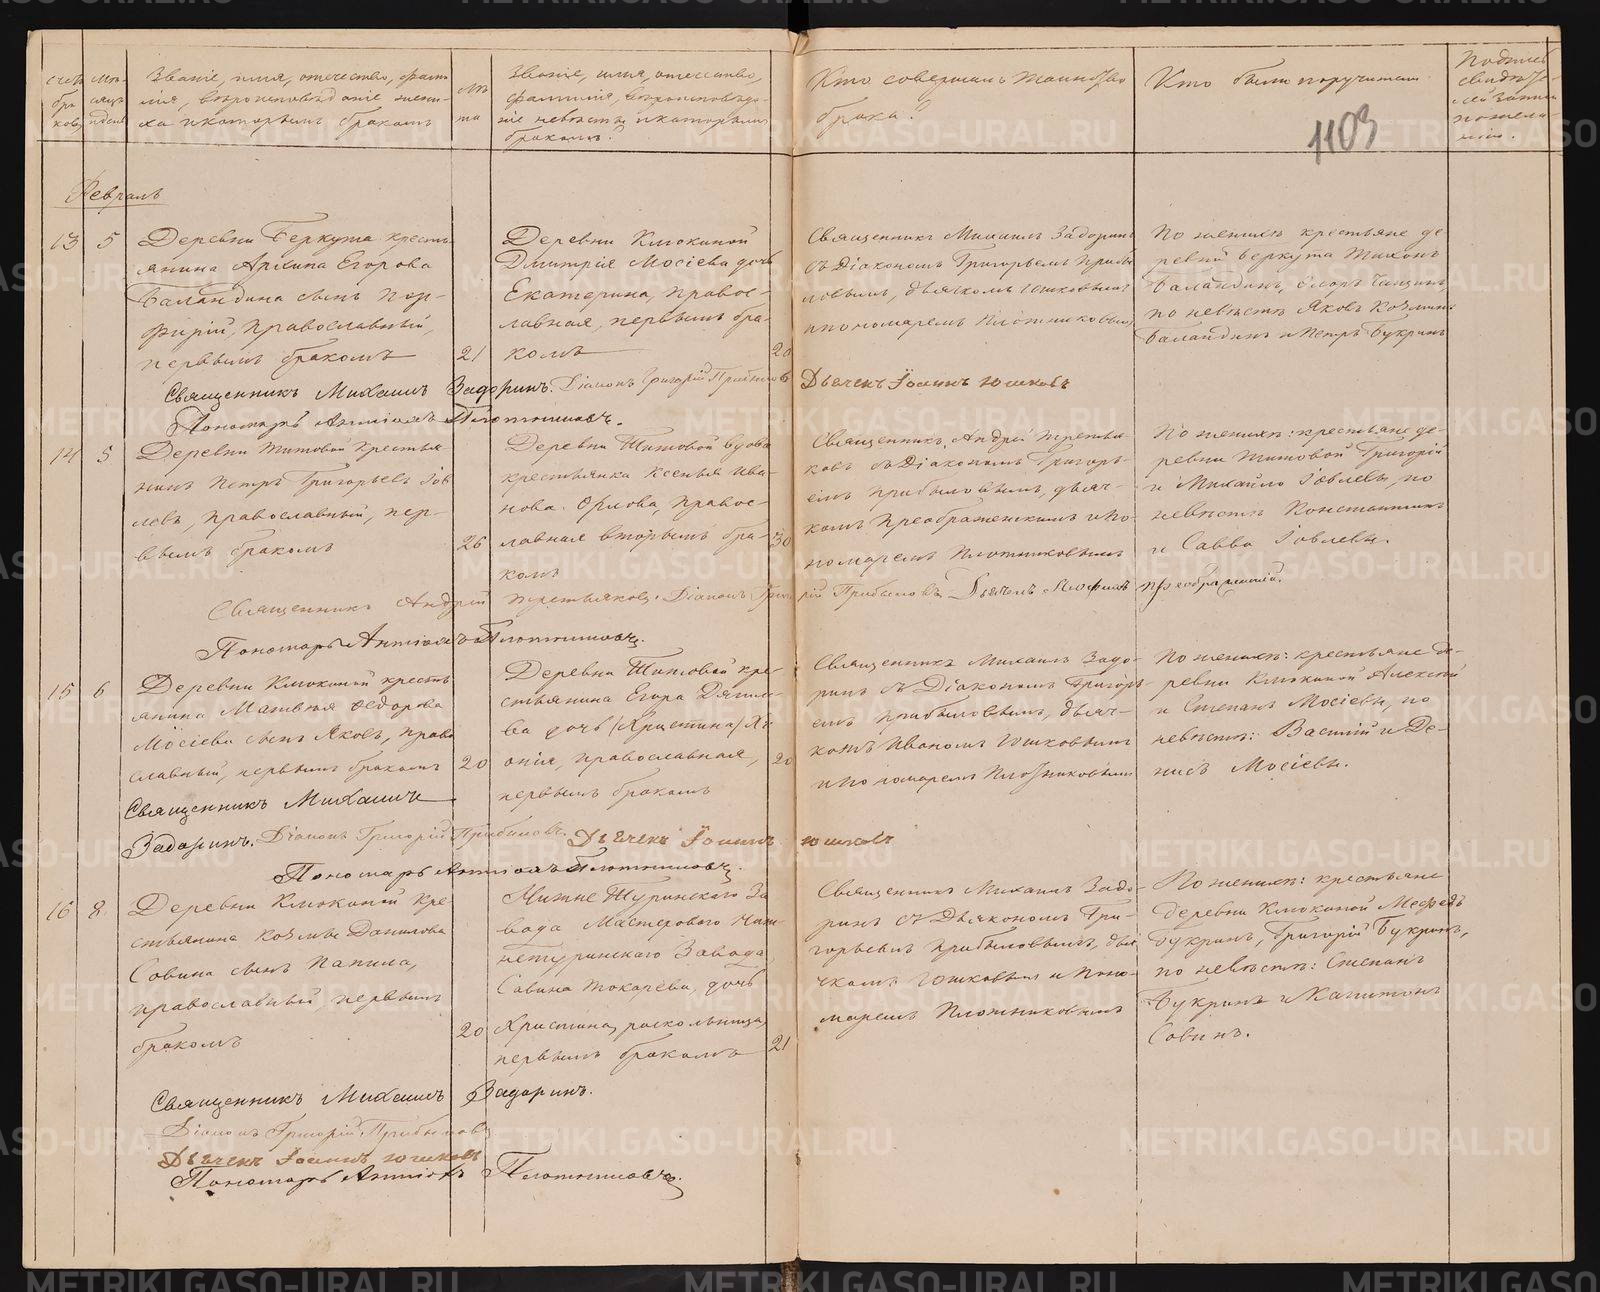 счетъ бра ковъ
мѣ- сяцъ и день
Званіе, имя, отечество, фами
лія, вѣроисповѣданіе жени-
ха и которымъ бракомъ
лѣ та
Званіе, имя, отечество,
фамилія, вѣроисповѣда-
ніе невѣсты и которымъ
бракомъ.
Кто совершалъ таинство
брака?
Кто были поручители
Подпись
свидѣте-
лей записи
по жела-
нію.
1103
Февраль
13
5
Деревни Беркута кресть-
янина Архипа Егорова
Баландина сынъ Пор-
фирій, православный,
первымъ бракомъ
21
Деревни Клюкиной
Дмитрія Мосіева дочь
Екатерина, правос-
лавная, первымъ бра-
комъ
20
Священникъ Михаилъ Задоринъ
съ Діакономъ Григорьемъ Прибы
ловымъ, дьячкомъ Юшковымъ
и пономаремъ Плотниковымъ
По женихѣ крестьяне де
ревни Беркута Тихонъ
Баландинъ,
по невѣстѣ Яковъ Козминъ
Баландинъ и Петръ Букринъ
Священникъ Михаилъ Задоринъ. Діаконъ Григорій Прибыловъ Дьячекъ Іоаннъ Юшковъ
Пономарь Плотниковъ.
14
5
Деревни Титовой кресть
нинъ Петръ Григорьевъ Іов
левъ, православный, пер-
вымъ бракомъ
26
Деревни Титовой вдова
крестьянка Ксенья Ива-
нова Орлова, правос-
лавная вторымъ бра-
комъ
30
Священникъ Андрей Третья
ковъ съ Діакономъ Григорь-
емъ Прибыловымъ, дьяч-
комъ Преображенскимъ и по-
номаремъ Плотниковымъ
По женихѣ: крестьяне де-
ревни Титовой Григорій
и Михайло Іовлевы, по
невѣстѣ Константинъ
и Савва Іовлевы.
Священникъ Андрей Третьяковъ. Діаконъ Григорій Прибыловъ Дьячекъ Преображенскій.
Пономарь Плотниковъ.
15
6
Деревни Клюкиной кресть
янина Матвѣя Ѳедорова
Мосіева сынъ Яковъ, право
славный, первымъ бракомъ
20
Деревни Титовой кре-
стьянина Егора Дягиле-
ва дочь (Христина)
православная,
первымъ бракомъ
20
Священникъ Михаилъ Задо-
ринъ съ Діакономъ Григорь-
емъ Прибыловымъ, дьяч-
комъ Иваномъ Юшковымъ
и пономаремъ Плотниковымъ
По женихѣ: крестьяне де-
ревни Клюкиной Алексѣй
и Степанъ Мосіевы, по
невѣстѣ: Василій и Де-
нисъ Мосіевы.
Священникъ Михаилъ
Задоринъ. Діаконъ Григорій Прибыловъ. Дьячекъ Іоаннъ Юшковъ
Пономарь Плотниковъ.
16
8
Деревни Клюкиной кре
стьянина Козмы Данилова
Совина сынъ
православный, первымъ
бракомъ
20
Нижне Туринскаго За
вода Мастерового
нетуринскаго Завода
Савина Токарева, дочь
Христина, раскольница,
первымъ бракомъ
21
Священникъ Михаилъ Задо-
ринъ съ Дьякономъ Гри-
горьемъ Прибыловымъ, дья
чкомъ Юшковымъ и поно-
маремъ Плотниковымъ
По женихѣ: крестьяне
деревни Клюкиной
Букринъ, Григорій Букринъ,
по невѣстѣ: Степанъ
Букринъ и Капитонъ
Совинъ.
Священникъ Михаилъ Задоринъ.
Діаконъ Григорій Прибыловъ
Дьячекъ Іоаннъ Юшковъ
Пономарь Плотниковъ.
METRIKI.GASO-URAL.RU